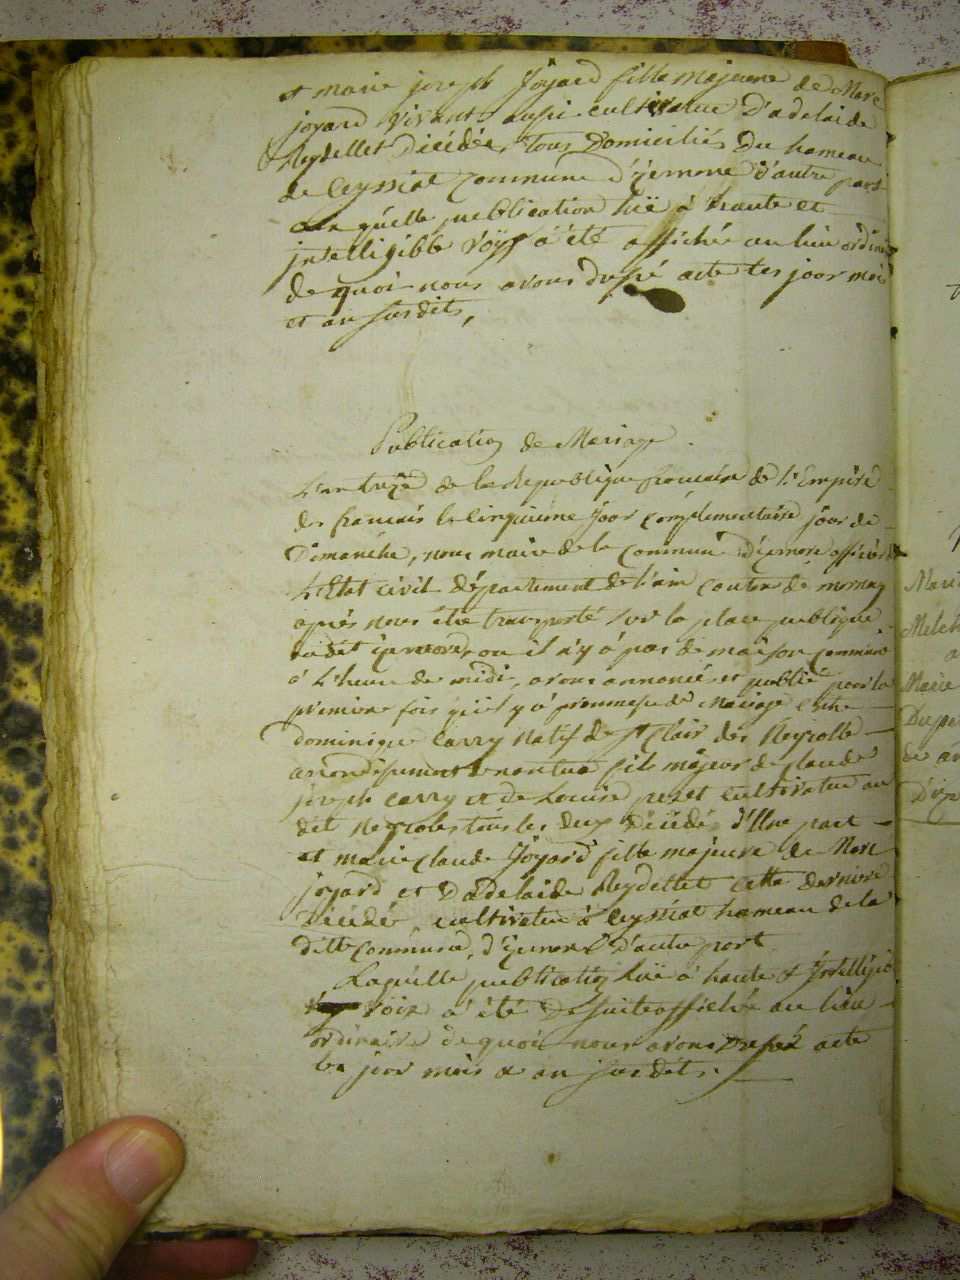 et marie joseph Joyard fille majeure de Marc
joyard vivant aussi cultivateur D'adelaide
Reydellet Décédée, tous Domiciliés Du hameau
de Ceyssiat Commune d'izernore D'autre part
la quelle publication luë à haute et
intelligible voÿx a été affiché au lieu ordinai
de quoi nous avons dressé acte les jour moi
et an susdits,
Publication de Mariage
L'an treize de la Republique francaise de L'Empire
des francais le Cinquieme Jour complémentaire jour de
Dimanche, nous maire de la commune d'izernore officier de
L'Etat civil département de l'ain canton de
après nous être transporté sur la place publique
dudit izernore, ou il n'y à pas de maison commune
à L'heure de midi, avons annoncé et publié pour la
premiere fois qu'il y à promesse de Mariage entre
dominique Carry Natif de St Clair
arrondissement de nantua fils majeur de Claude
joseph Carry et de Louise cultivateur au
dit tous les deux Décédés d'Une part
et marie claude Joyard fille majeure de Marc
joyard et D'adelaide Reydellet cette derniere
Décédé cultivateur à Ceyssiat hameau de la
ditte Commune, d'izernore D'autre part
Laquelle publication luë à haute & Intelligib
voix a été De suite affiché au lieu
ordinaire de quoi nous avons Dressé acte
les jour mois & an susdits.
Marie
Melch
a
Marie
D'iz